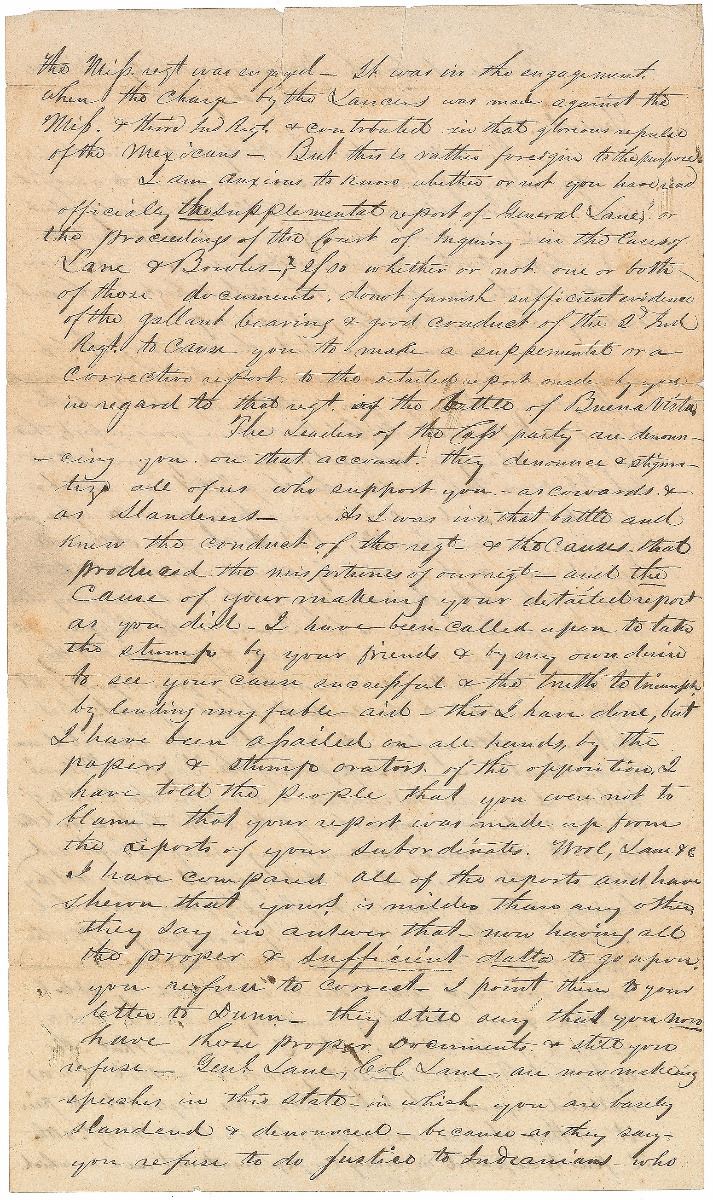 the Miss regt was engaged – It was in the engagement
when the Charge by the Lancers was made against the
Miss. & third Ind Regt. & contributed in that glorious repulse
of the Mexicans – But this is rather foreign to the purpose
I am anxious to know whether or not you have read
officially the supplemental report of General Lane, or
the proceedings of the Court of Inquiry in the Cases of
Lane & Bowles –? If so whether or not one or both
of those documents. do not furnish sufficient evidence
of the gallant bearing & good conduct of the 2d Ind
Regt. to cause you to make a supplemental or a
corrective report. to the detailed report made by you
in regard to that regt. of the battle of Buena Vista
The Leaders of the Cass party are denoun-
-cing you on that account. they denounce & stigma-
tize all of us who support you – as cowards &
as Slanderers – As I was in that battle and
knew the conduct of the regt & the causes that
produced the misfortunes of our regt – and the
Cause of your makeing your detailed report
as you did – I have been called upon to take
the stump by your friends & by my own desire
to see your cause successful & the truth to triumph
by lending my feble aid – this I have done, but
I have been assailed on all hands, by the
papers & stump orators of the opposition, I
have told the People that you were not to
blame – that your report was made up from
the reports of your subordinates. Wool, Lane &c
I have compared all of the reports and have
shewn that yours is milder than any other
they say in answer that – now having all
the proper & sufficient datta to go upon,
you refuse to correct – I point them to your
letter to Dunn – they still say that you now
have those proper documents & still you
refuse – Genl Lane, Col Lane are now makeing
speeches in this state – in which you are basely
slanderd & denounced – because – as they say –
you refuse to do justice to Indianians who